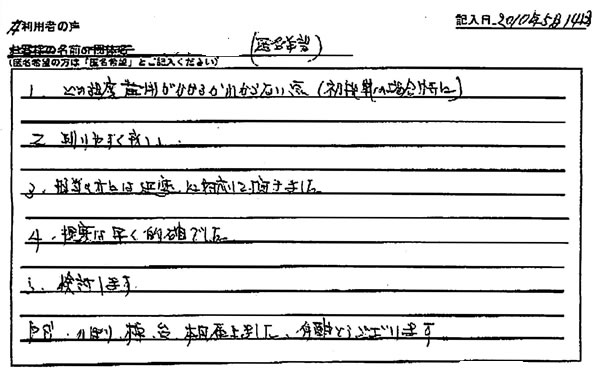 ご利用者の声
記入日 2010年5月14日
お客様の名前or団体名
(匿名希望)
(匿名希望の方は「匿名希望」とご記入ください)
1. どの程度費用がかかるかわからない点(初挑戦の場合特に)
2. 判りやすく良い。
3. 担当の方には 迅速 に対応して頂きました
4. 提案は早く的確でした。
5. 検討します
P.S. のぼり、棒、台 本日届きました、有難とうございます